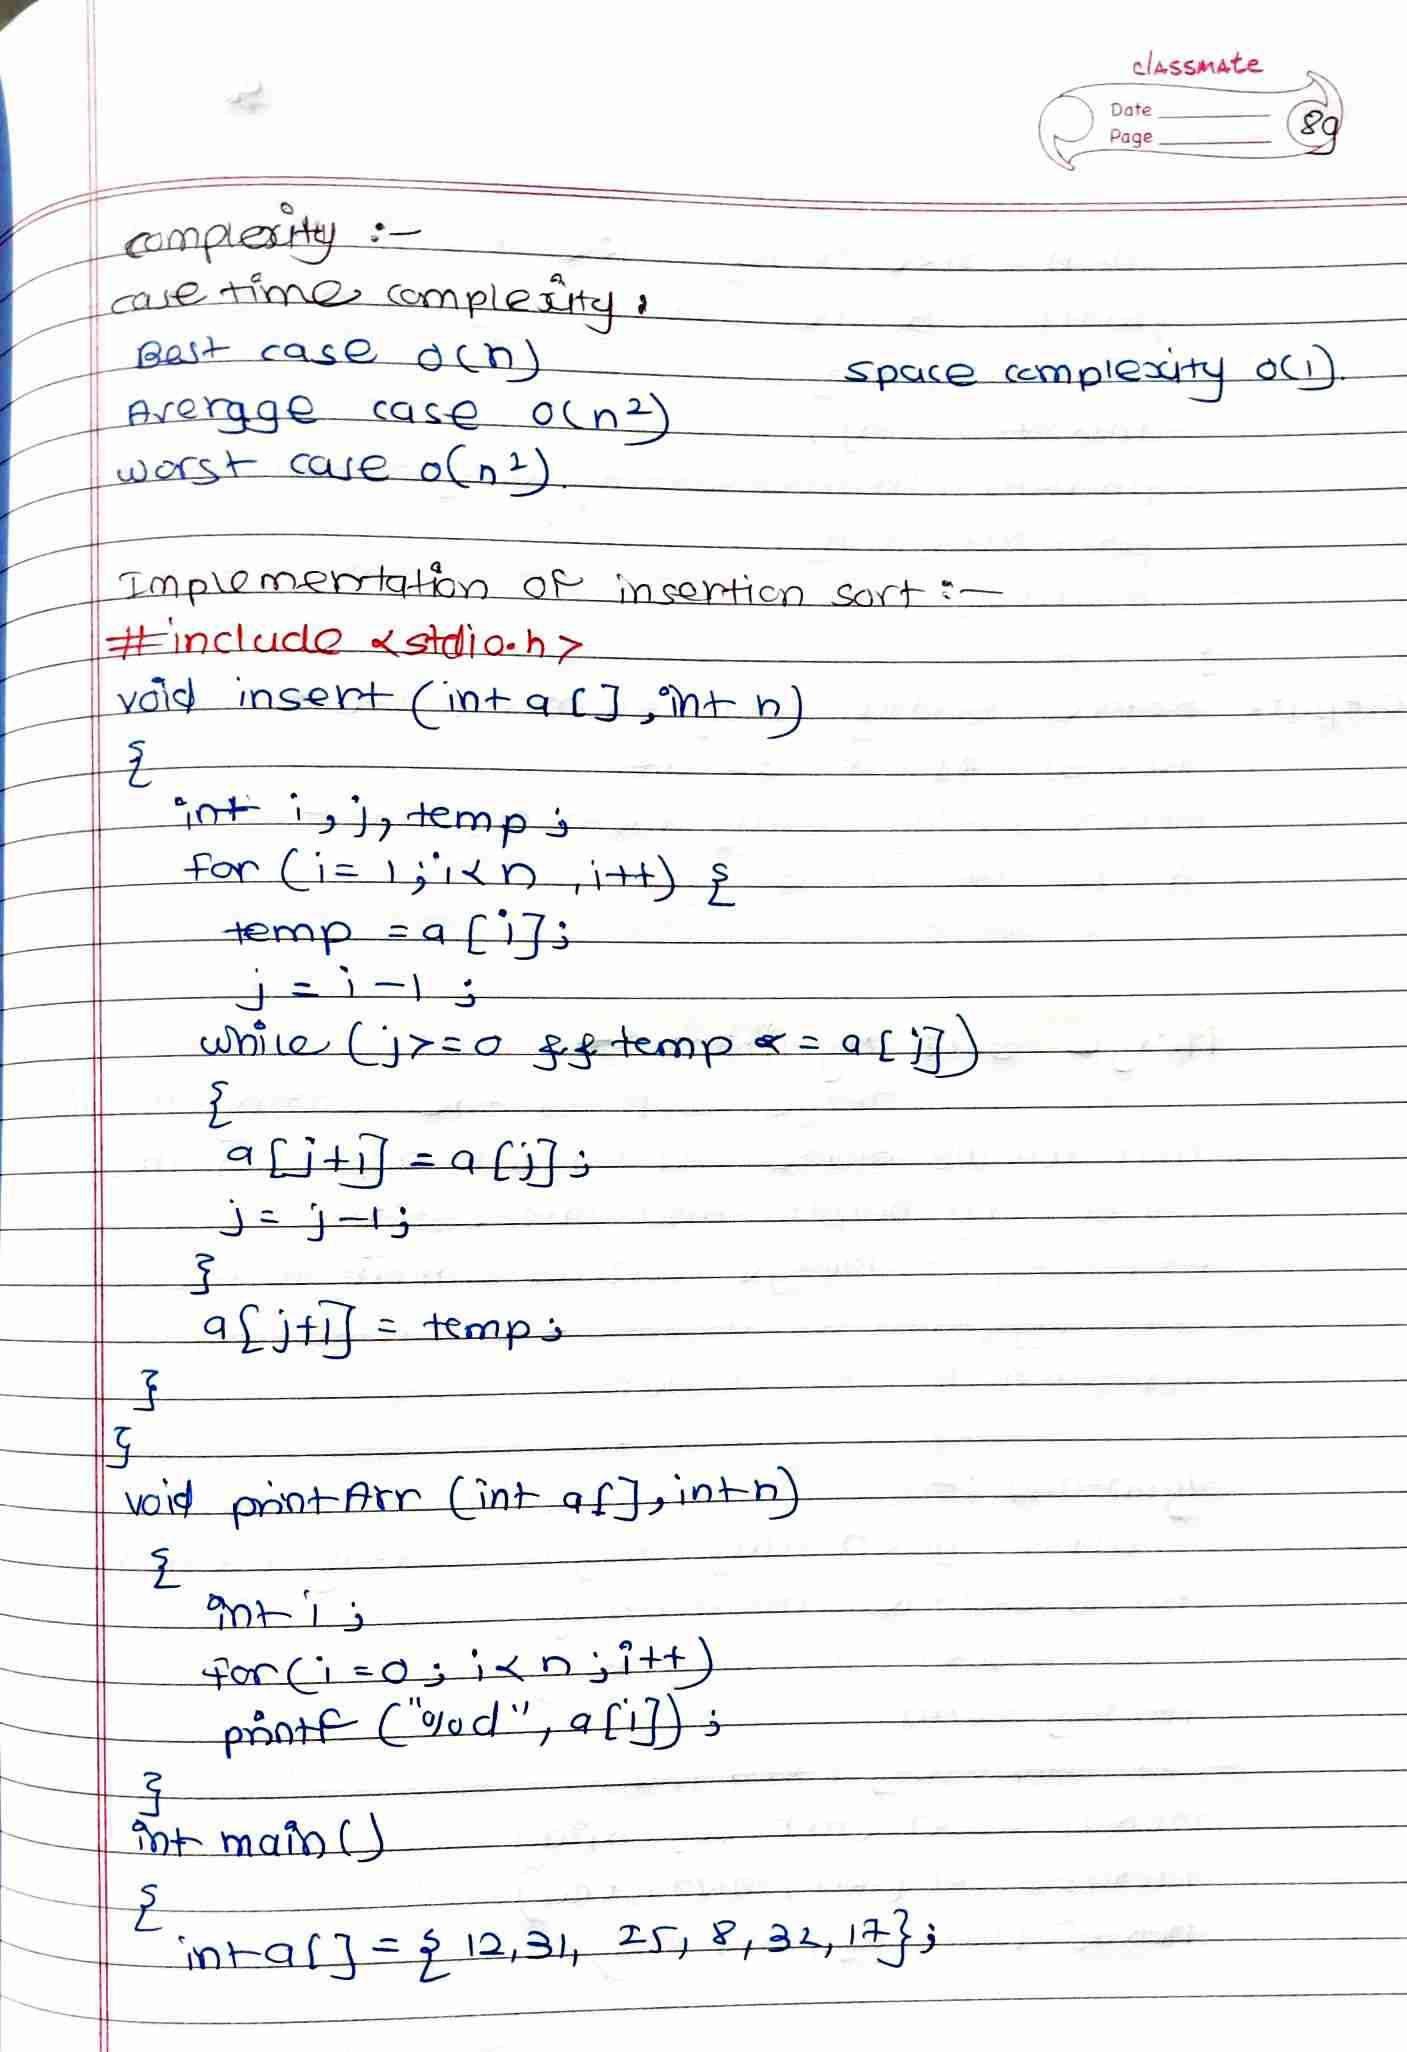 classmate
Date
Page
89
complexity :-
case time complexity,
Best case O(n)
space complexity O(1).
Average case O(n²)
worst case O(n²).
Implementation of insertion sort :-
#include <stdio.h>
void insert (int a[], int n)
{
int i, j, temp;
for (i= 1; i< n , i++) {
temp = a [i];
j = i -1 ;
while (j>=0 && temp <= a[j])
{
a[j+1] = a[j];
j = j-1;
}
a[j+1] = temp;
}
}
void printArr (int a[], int n)
{
int i ;
for(i=0; i< n; i++)
printf ("%d", a[i]);
}
int main()
{
int a[] = { 12, 31, 25, 8, 32, 17};